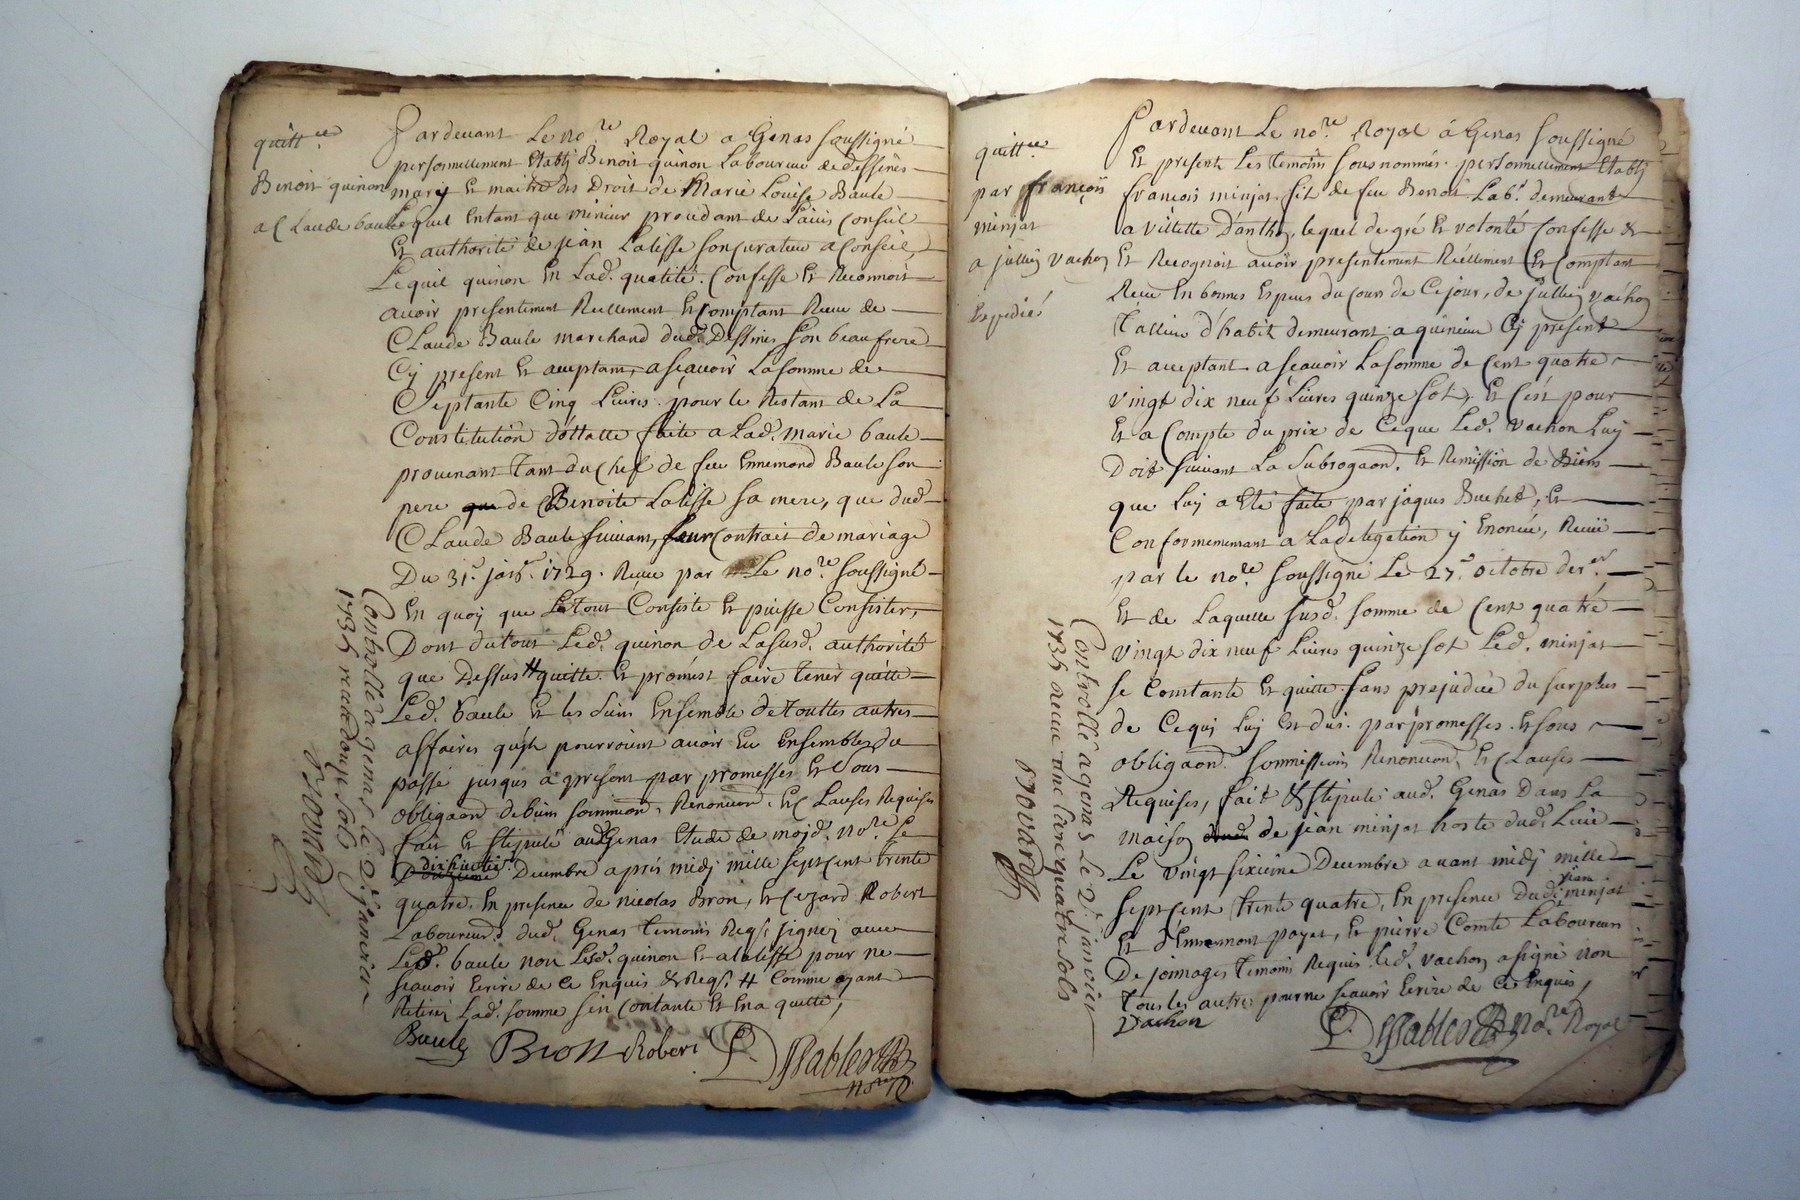 quitt.ce
Benoit quinon
a Claude baule
Pardevant Le no.re Royal a Genas soussigné
personnellement Etably Benoit quinon Laboureur de dessines
mary et maitre des Droit de Marie Louise Baule
Lequel Entant que mineur procedant de Laduis, Conseil
Et authorité de jean Latisse son curateur a Conseil,
Lequil quinon En Lad. qualité. Confesse Et Reconnoit
avoir presentement Reellement Et comptant Receu de
Claude Baule marchand dud. Dessines son beaufrere
Cy present Et acceptant, a sçavoir La somme de
Septante Cinq Livres. pour le Restant de La
Constitution dottalle faite a Lad. marie baule
provenant Tant du Chef de feu Ennemond Baule son
pere que de Benoite Latisse sa mere, que dud.
Claude Baule suivant, leur contrait de mariage
Du 31.e janv. 1729. Receu par Le no.re soussigné
En quoy que Le tout Consiste Et puisse Consister,
Dont du tout Led. quinon de La susd. authorité
que Dessus # quitte Et promest faire tenir quitte
Led. baule Et les siens Ensemble de touttes autres
affaires quils pourroient avoir Eu Ensembles du
passé jusques a present par promesses Et sous
obligaon de biens soumision, Renoncion. Et Clauses Requises
fait Et stipulé aud. Genas Etude de mojd. no.re Le
dixhuitie. Decembre aprés midj mille sept cent trente
quatre, En presence de nicolas Bron, Et Cezard Robert
Laboureurs dud. Genas temoins Reqs. signez avec
Led. baule non Lesd. quinon Et Latisse pour ne
scavoir Ecrire de Ce Enquis & Reqs. # Comme ayant
Retiré Lad. somme sen contante Et Ena quitte,
Baule Bron Robert
no.re R.
Controllé a genas le 2.e janvier
1735 receu douze sols
quitt.ce
par françois
minjat
a jullien vachon
Expedié
Pardevant Le no.re Royal á Genas soussigné
Et present Les temoins sousnommés. personnellement Etably
françois minjat. fils de feu Benoit Lab.r demeurant
a villette D'anthon, lequel de gré Et volonté Confesse &
Et Recognoit avoir presentement Réellement Et Comptant
Receu En bonnes Especes du Cours de Ce jour, de jullien vachon
Tallieur d'habit demeurant a quincieu Cy present
Et acceptant a scavoir La somme de Cent quatre
vingt dix neuf Livres quinze sols, Et C'ést pour
Et a Compte du prix de Ce que Led. vachon Luy
Doit suivant La Subrogaon. Et Remission de Biens
que Luy a Eté faite par jaques Buchet, Et
Conformement a La delegation y Enoncée, Receüe
par le no.re soussigné Le 27.e octobre der.er
Et de Laquelle susd. somme de Cent quatré
vingt dix neuf Livres quinze sol Led. minjat
se Contante Et quitte sans prejudice du surplus
de Ce qui Luy Est dus. par promesses. Et sous
obligaon. soumissions Renoncion, Et Clauses
Requises, fait & stipulé aud. Genas Dans La
maison de jean minjat hoste dud. Lieu
Le vingt sixieme Decembre avant midj mille
sept cent trente quatre, En presence dud. jean minjat
Et d'Ennemont payet, Et pierre Comte Laboureurs
De joinages temoins Requis. Led. vachon a signé non
tous les autres pour ne scavoir Ecrire de Ce Enquis,
Vachon
no.re Royal
Controllé a genas Le 2.e janvier
1735 receu une livre quatre sols